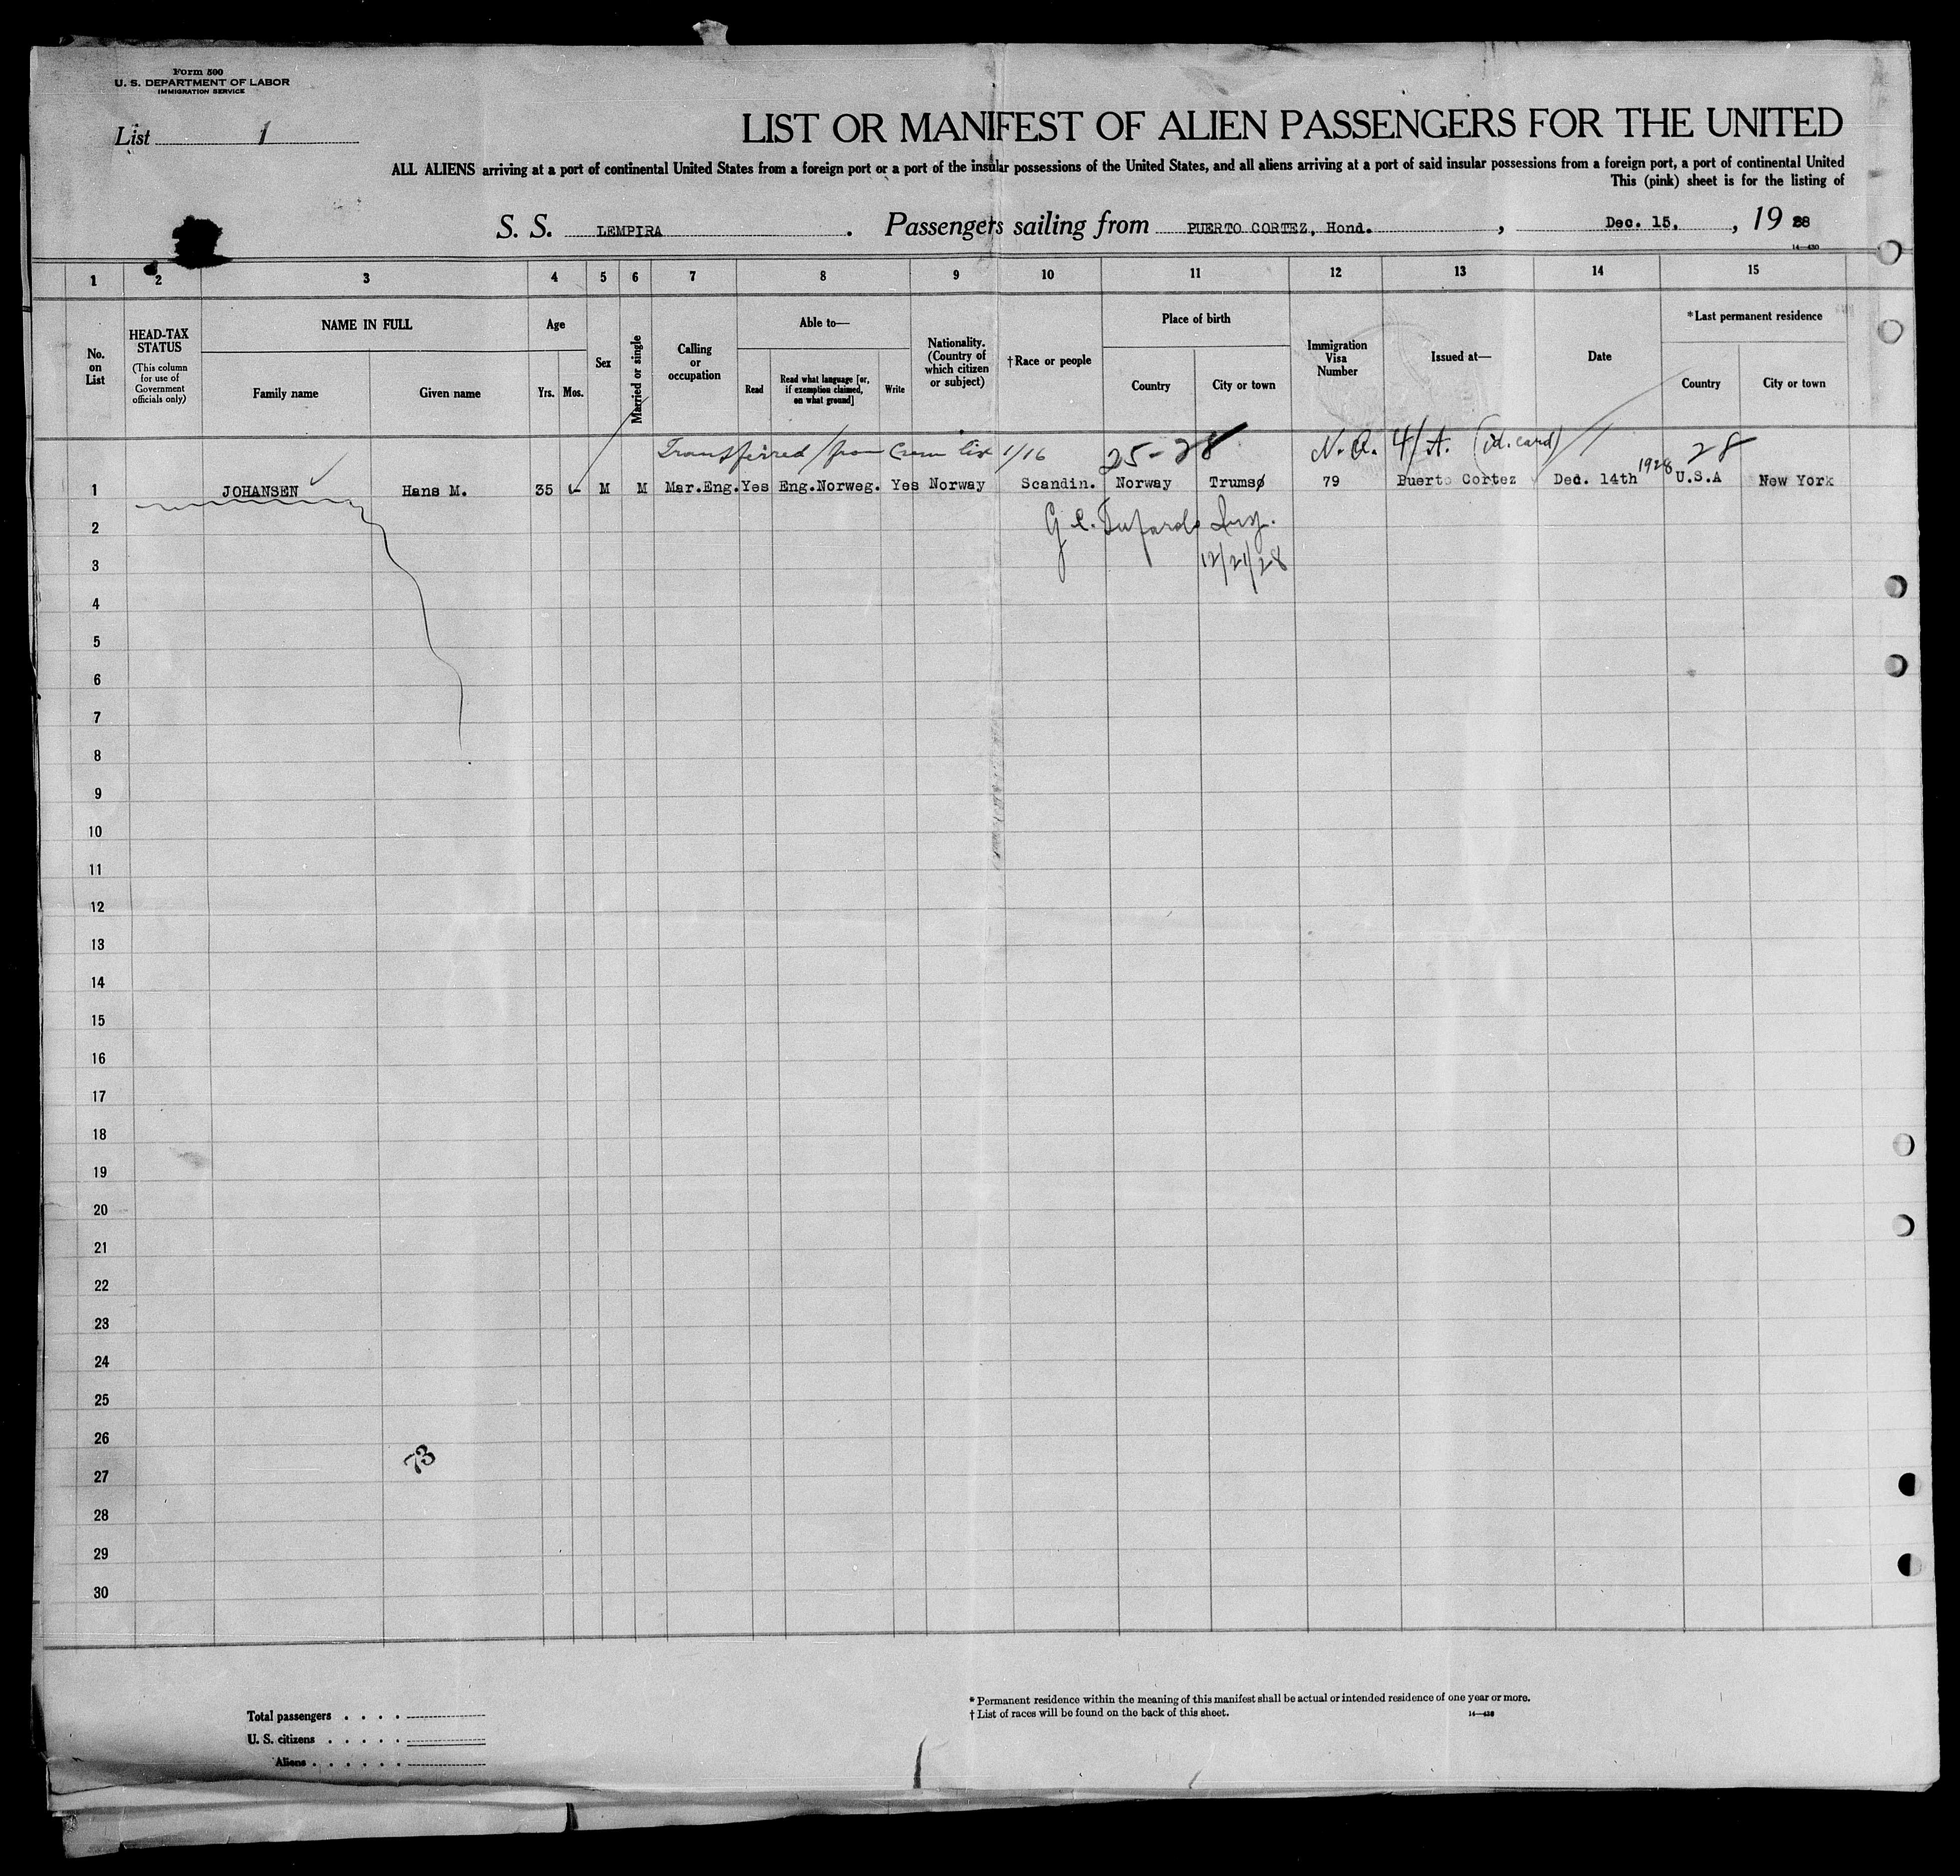 Form 500
U. S. DEPARTMENT OF LABOR
IMMIGRATION SERVICE
List 1
LIST OR MANIFEST OF ALIEN PASSENGERS FOR THE UNITED
ALL ALIENS arriving at a port of continental United States from a foreign port or a port of the insular possessions of the United States, and all aliens arriving at a port of said insular possessions from a foreign port, a port of continental United
This (pink) sheet is for the listing of
S. S. LEMPIRA. Passengers sailing from PUERTO CORTEZ, Hond., Dec. 15, 1928
14—430
1 2 3 4 5 6 7 8 9 10 11 12 13 14 15
No. on List
HEAD-TAX STATUS
(This column for use of Government officials only)
NAME IN FULL
Family name
Given name
Age
Yrs. Mos.
Sex
Married or single
Calling or occupation
Able to—
Read
Read what language [or, if exemption claimed, on what ground]
Write
Nationality. (Country of which citizen or subject)
†Race or people
Place of birth
Country
City or town
Immigration Visa Number
Issued at—
Date
*Last permanent residence
Country
City or town
Transferred from Crew list 1/16 25-28 N.Q. 4/A. (id. card) 28
1 JOHANSEN Hans M. 35 M M Mar.Eng. Yes Eng.Norweg. Yes Norway Scandin. Norway Trumsø 79 Puerto Cortez Dec. 14th 1928 U.S.A New York
2 G. C. Insp.
3 12/21/28
4
5
6
7
8
9
10
11
12
13
14
15
16
17
18
19
20
21
22
23
24
25
26
73
27
28
29
30
* Permanent residence within the meaning of this manifest shall be actual or intended residence of one year or more.
† List of races will be found on the back of this sheet. 14—430
Total passengers . . . .
U. S. citizens . . . . .
Aliens . . . . . .